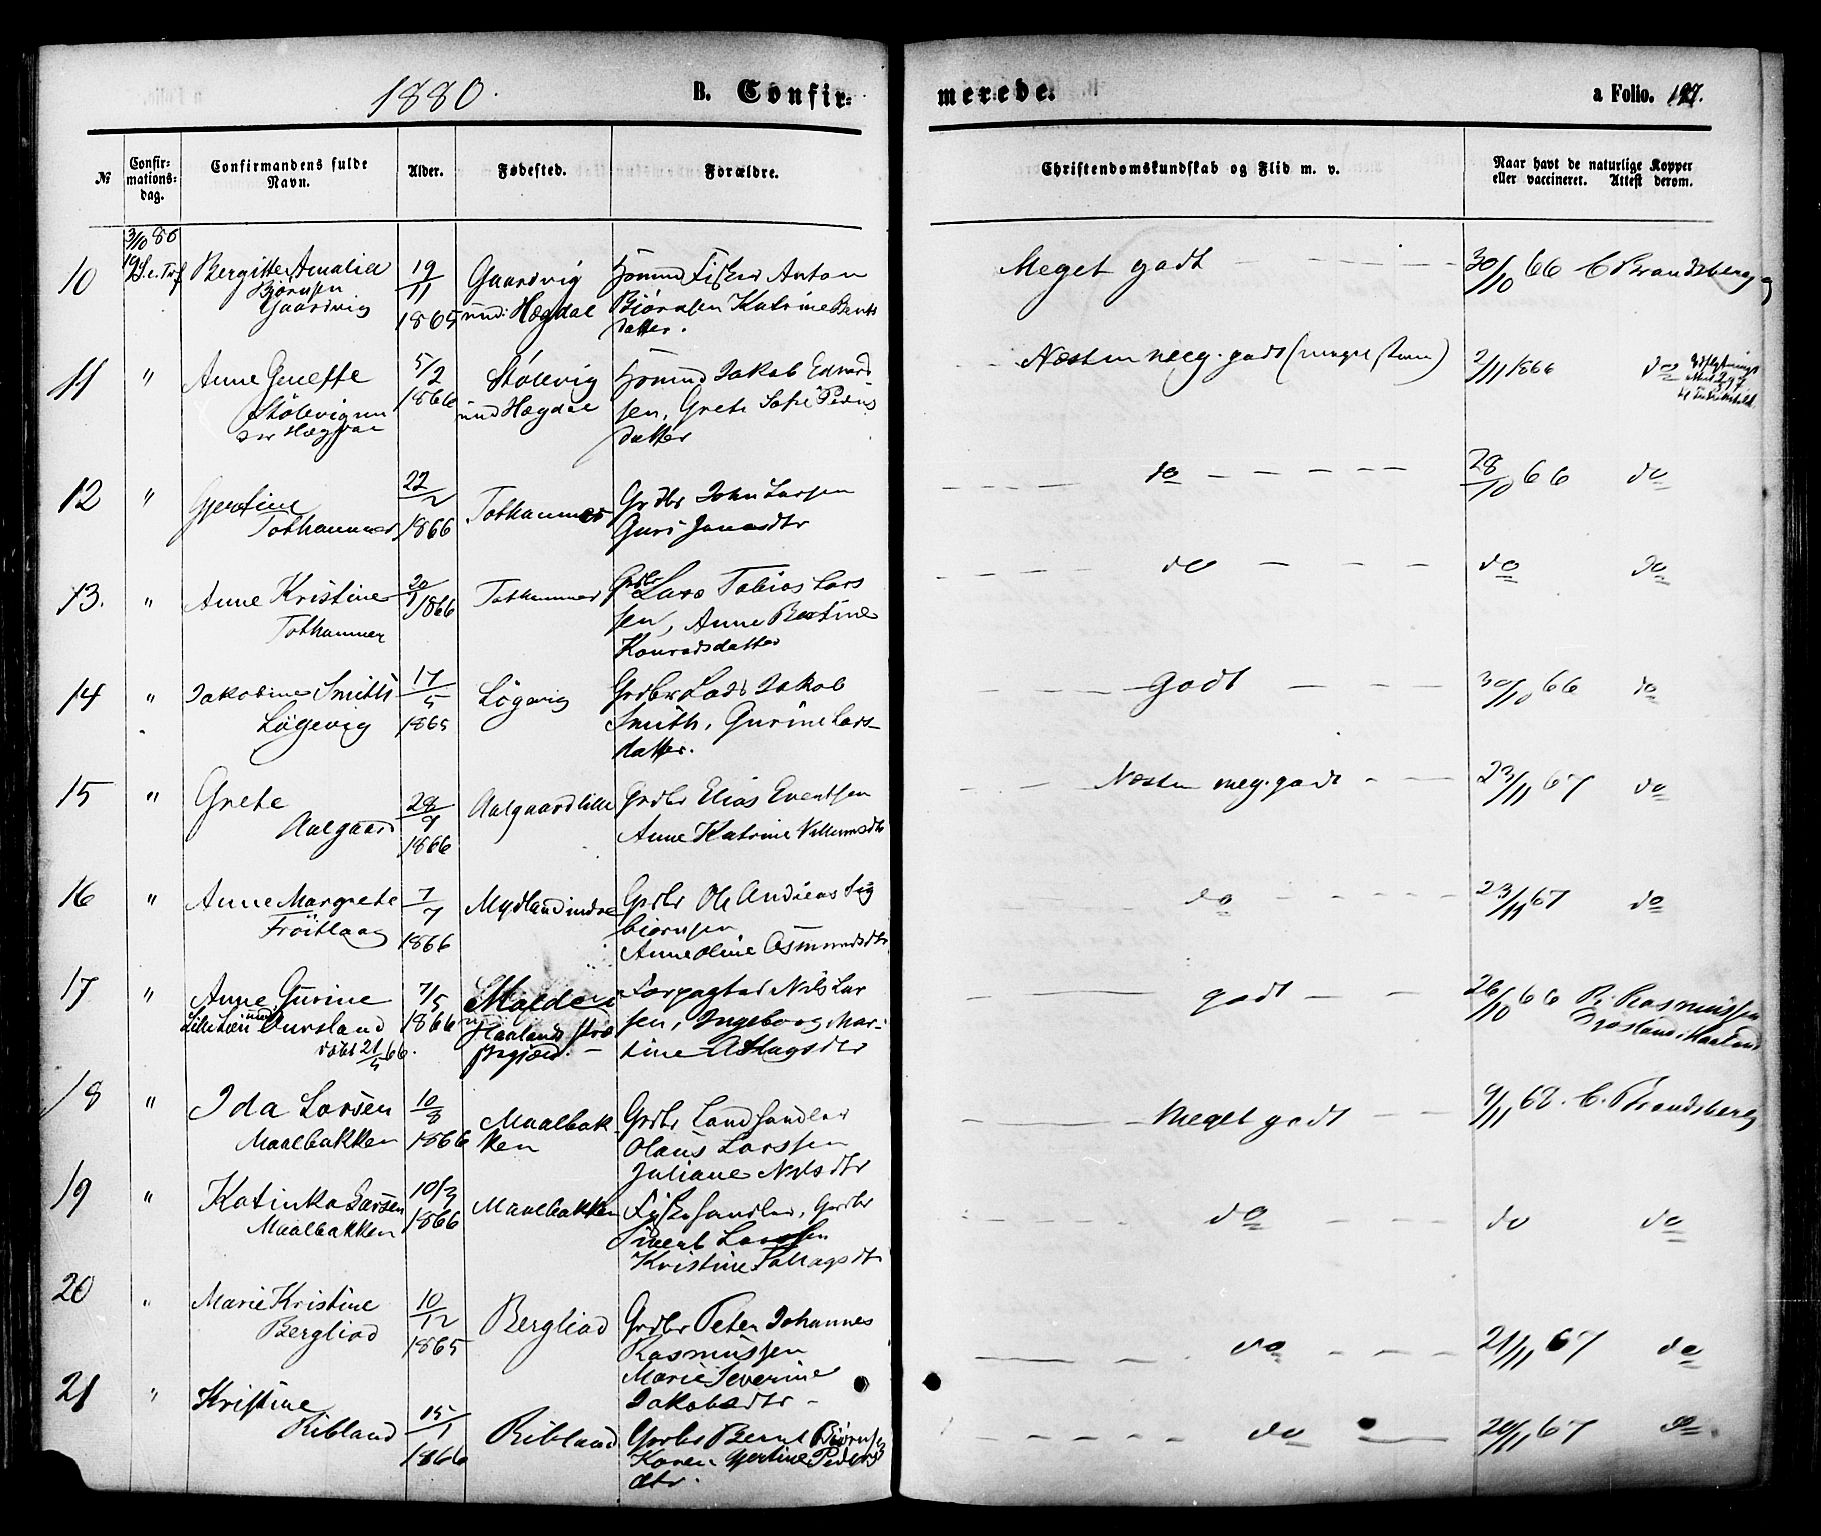 1880.
B. Confir-
merede.
a Folio. 127.
№
Confir-
mations-
dag.
Confirmandens fulde
Navn.
Alder.
Fødested.
Forældre.
Christendomskundskab og Flid m. v.
Naar havt de naturlige Kopper
eller vaccineret. Attest derom.
3/10 80
19 S. e. Trf
10 Bergitte Amalia
Bjørnsen
Gaardvig
19/11
1865
Gaardvig
und: Hægdal
Anton
Bjørnsen Katrine Bents
datter.
Meget godt
30/10 66 C Brandsberg
11 " Anne
Stølevig un
der Hægdal
5/2
1866
Stølevig
und Hægdal
Jakob Edvard
sen, Grete Sofie Peders
datter
Næsten meg. godt
2/11 1866 do
12 " Gjertine
Tothammer
22/2
1866
Tothammer
Grdbr John Larsen
Guri Jonasdtr
do
28/10 66 do
13. " Anne Kristine
Tothammer
20/1 1866
Tothammer
Grdbr Lars Tobias Lars
sen, Anne Bertine
Konradsdatter
do
do do
14 " Jakobine Smith
Løgevig
17/5
1865
Løgevig
Grdbr Lars Jakob
Smith, Gurine Lars-
datter.
Godt
30/10 66 do
15 " Grete
Aalgaard
28/9
1866
Aalgaard lille
Grdbr Elias Evertsen
Anne Katrine Villumsdtr
Næsten meg. godt
23/11 67 do
16 " Anne Margrete
Frøitlaag
7/7
1866
Mydland indre
Grdbr Ole Andreas Sig
biørnsen
Anne Oline Osmundsdtr
do
23/11 67 do
17 " Anne Gurine
Lille Lien und Dursland
døbt 21/5 66.
7/5
1866
Haaland
Forpagter Nils Lar
sen, Ingeborg Mar-
tine Atlagsdtr
godt
26/10 66 R. Rasmussen
18 " Ida Larsen
Maalbakken
10/8
1866
Maalbak-
ken
Grdbr Landhandler
Olaus Larssen
Juliane Nilsdtr
Meget godt
9/11 68. C. Brandsberg
19 " Katinka Larsen
Maalbakken
10/3
1866
Maalbakken
Fiskehandler, Grdbr
Sivert Larssen
Kristine Tollagsdtr
do
do do
20 " Marie Kristine
Bergliod
10/12
1865
Bergliod
Grdbr Peter Johannes
Rasmussen
Marie Severine
Jakobsdtr -
do
21/11 67 do
21 " Kristine
Ribland
15/1
1866
Ribland
Grdbr Bernt Biørnsen
Karen Gjertine Peders
dtr.
do
20/11 67 do